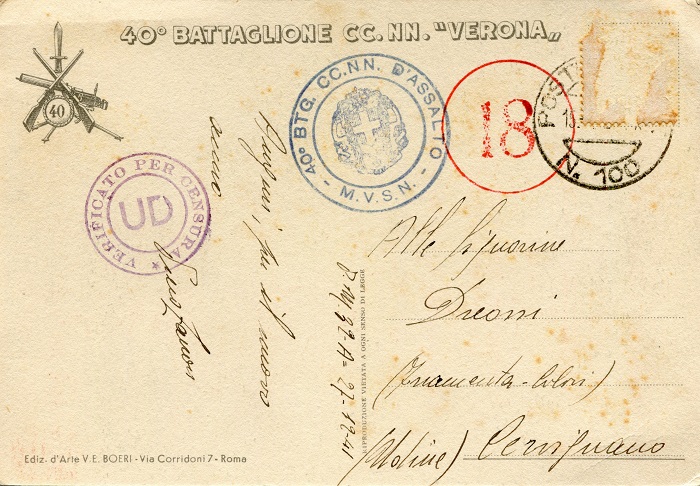 40° BATTAGLIONE CC. NN. "VERONA„
40
40° BTG. CC.NN. D'ASSALTO
- M.V.S.N. -
18
POST
N. 100
VERIFICATO PER CENSURA
UD
Auguri, per il nuovo
anno
Alle Signorine
Dreossi
(Ferramenta-Colori)
(Udine) Cervignano
27-12-41
RIPRODUZIONE VIETATA A OGNI SENSO DI LEGGE
Ediz. d'Arte V.E. BOERI - Via Corridoni 7 - Roma